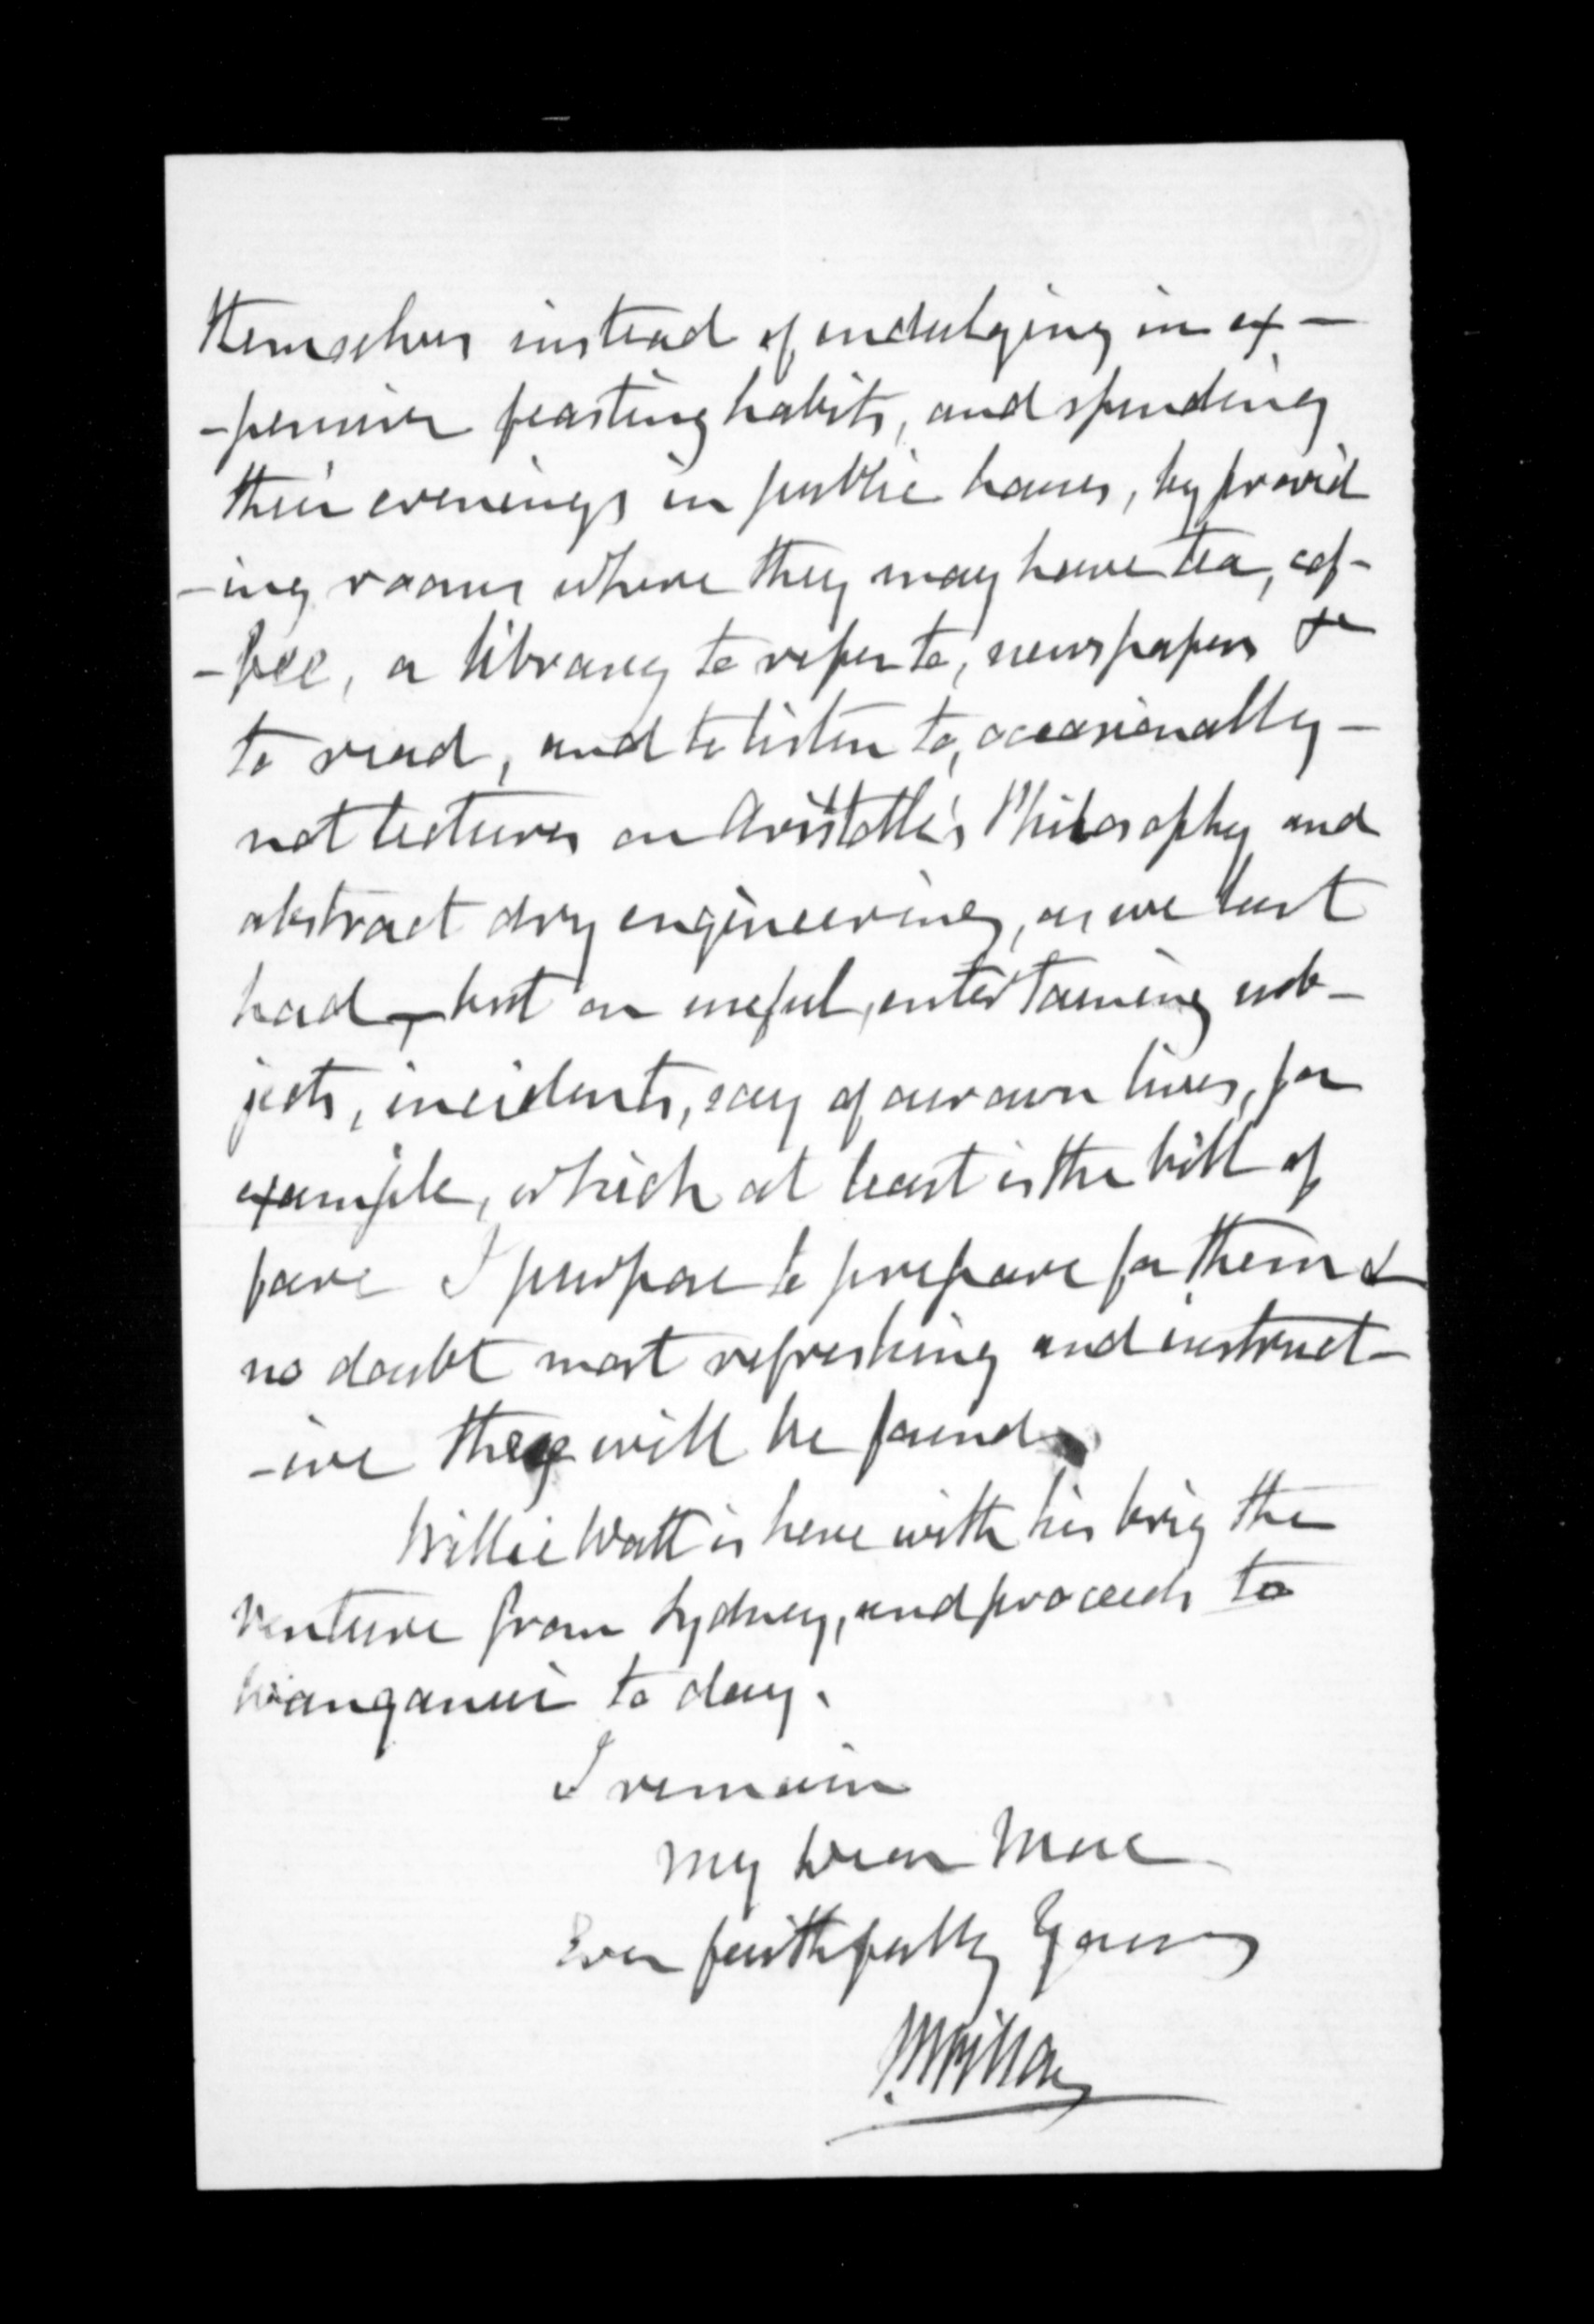 themselves instead of indulging in ex-
-pensive feasting habits, and spending
their evenings in public houses, by provid
-ing rooms where they may have tea, cof-
-fee, a library to refer to, newspapers &c
to read, and to listen to, occasionally -
not lectures on Aristotle's Philosophy and
abstract dry engineering, as we last
had, - but on useful, entertaining sub-
jects, incidents, say of our own lives, for
example, which at least is the bill of
fare I purpose to prepare for them &
no doubt most refreshing and instruct-
-ive they will be found.
Willie Watt is here with his brig the
Venture from Sydney, and proceeds to
Wanganui to day.
I remain
My Dear Mac
Ever faithfully Yours